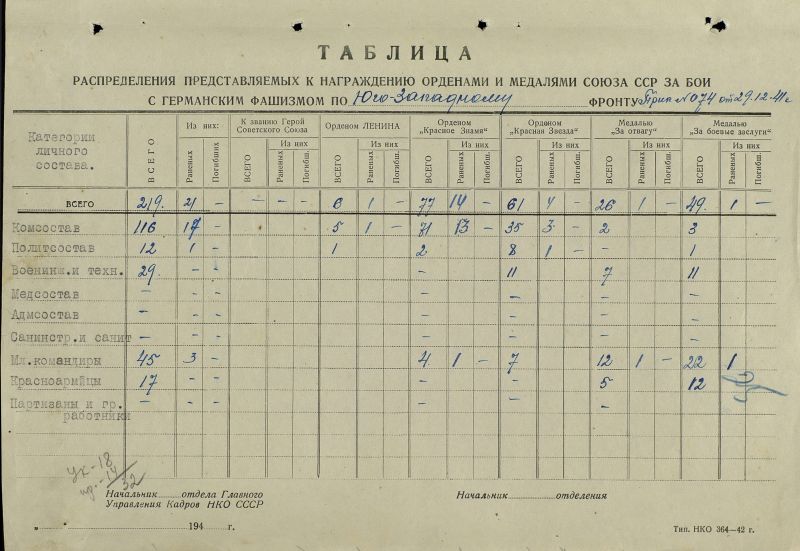 ТАБЛИЦА
РАСПРЕДЕЛЕНИЯ ПРЕДСТАВЛЯЕМЫХ К НАГРАЖДЕНИЮ ОРДЕНАМИ И МЕДАЛЯМИ СОЮЗА ССР ЗА БОИ
С ГЕРМАНСКИМ ФАШИЗМОМ ПО Юго-Западному ФРОНТУ Прик №074 от 29.12.41г
Категории личного состава. ВСЕГО Из них: Раненых Погибших К званию Герой Советского Союза ВСЕГО Из них Раненых Погибш. Орденом ЛЕНИНА ВСЕГО Из них Раненых Погибш. Орденом „Красное Знамя“ ВСЕГО Из них Раненых Погибш. Орденом „Красная Звезда“ ВСЕГО Из них Раненых Погибш. Медалью „За отвагу“ ВСЕГО Из них Раненых Погибш. Медалью „За боевые заслуги“ ВСЕГО Из них Раненых Погибш.
ВСЕГО 219. 21 - - - - 6 1 - 77 14 - 61 4 - 26 1 - 49. 1 -
Комсостав 116 17 - 5 1 - 71 13 - 35 3 - 2 3
Политсостав 12 1 - 1 2 8 1 - 1
Военинж.и техн. 29. - - - 11 7 11
Медсостав - - - - - - -
Адмсостав - - - - - - -
Санинстр.и санит - - - - - - -
Мл.командиры 45 3 - 4 1 - 7 12 1 - 22 1
Красноармейцы 17 - - - - 5 12
Партизаны и гр. работники - - - - - -
ук-18
-14
32
Начальник..........отдела Главного
Управления Кадров НКО СССР
Начальник..........отделения
„ 194 г.
Тип. НКО 364—42 г.